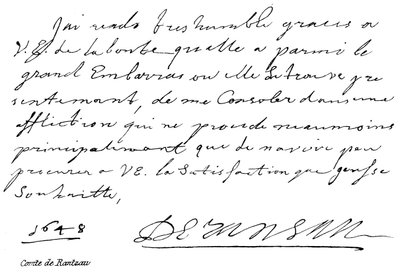 J'ai rendu tres humble graces a
V. E. de la bonte qu'elle a parmi le
grand Embarras ou elle se trouve pre
sentemant, de me Consoler dans une
affliction qui ne procede neaumoins
principalemant que de n'avoir peu
procurer a V E. la Satisfaction que j'eusse
Souhaitte,
1648
Comte de Rantzau